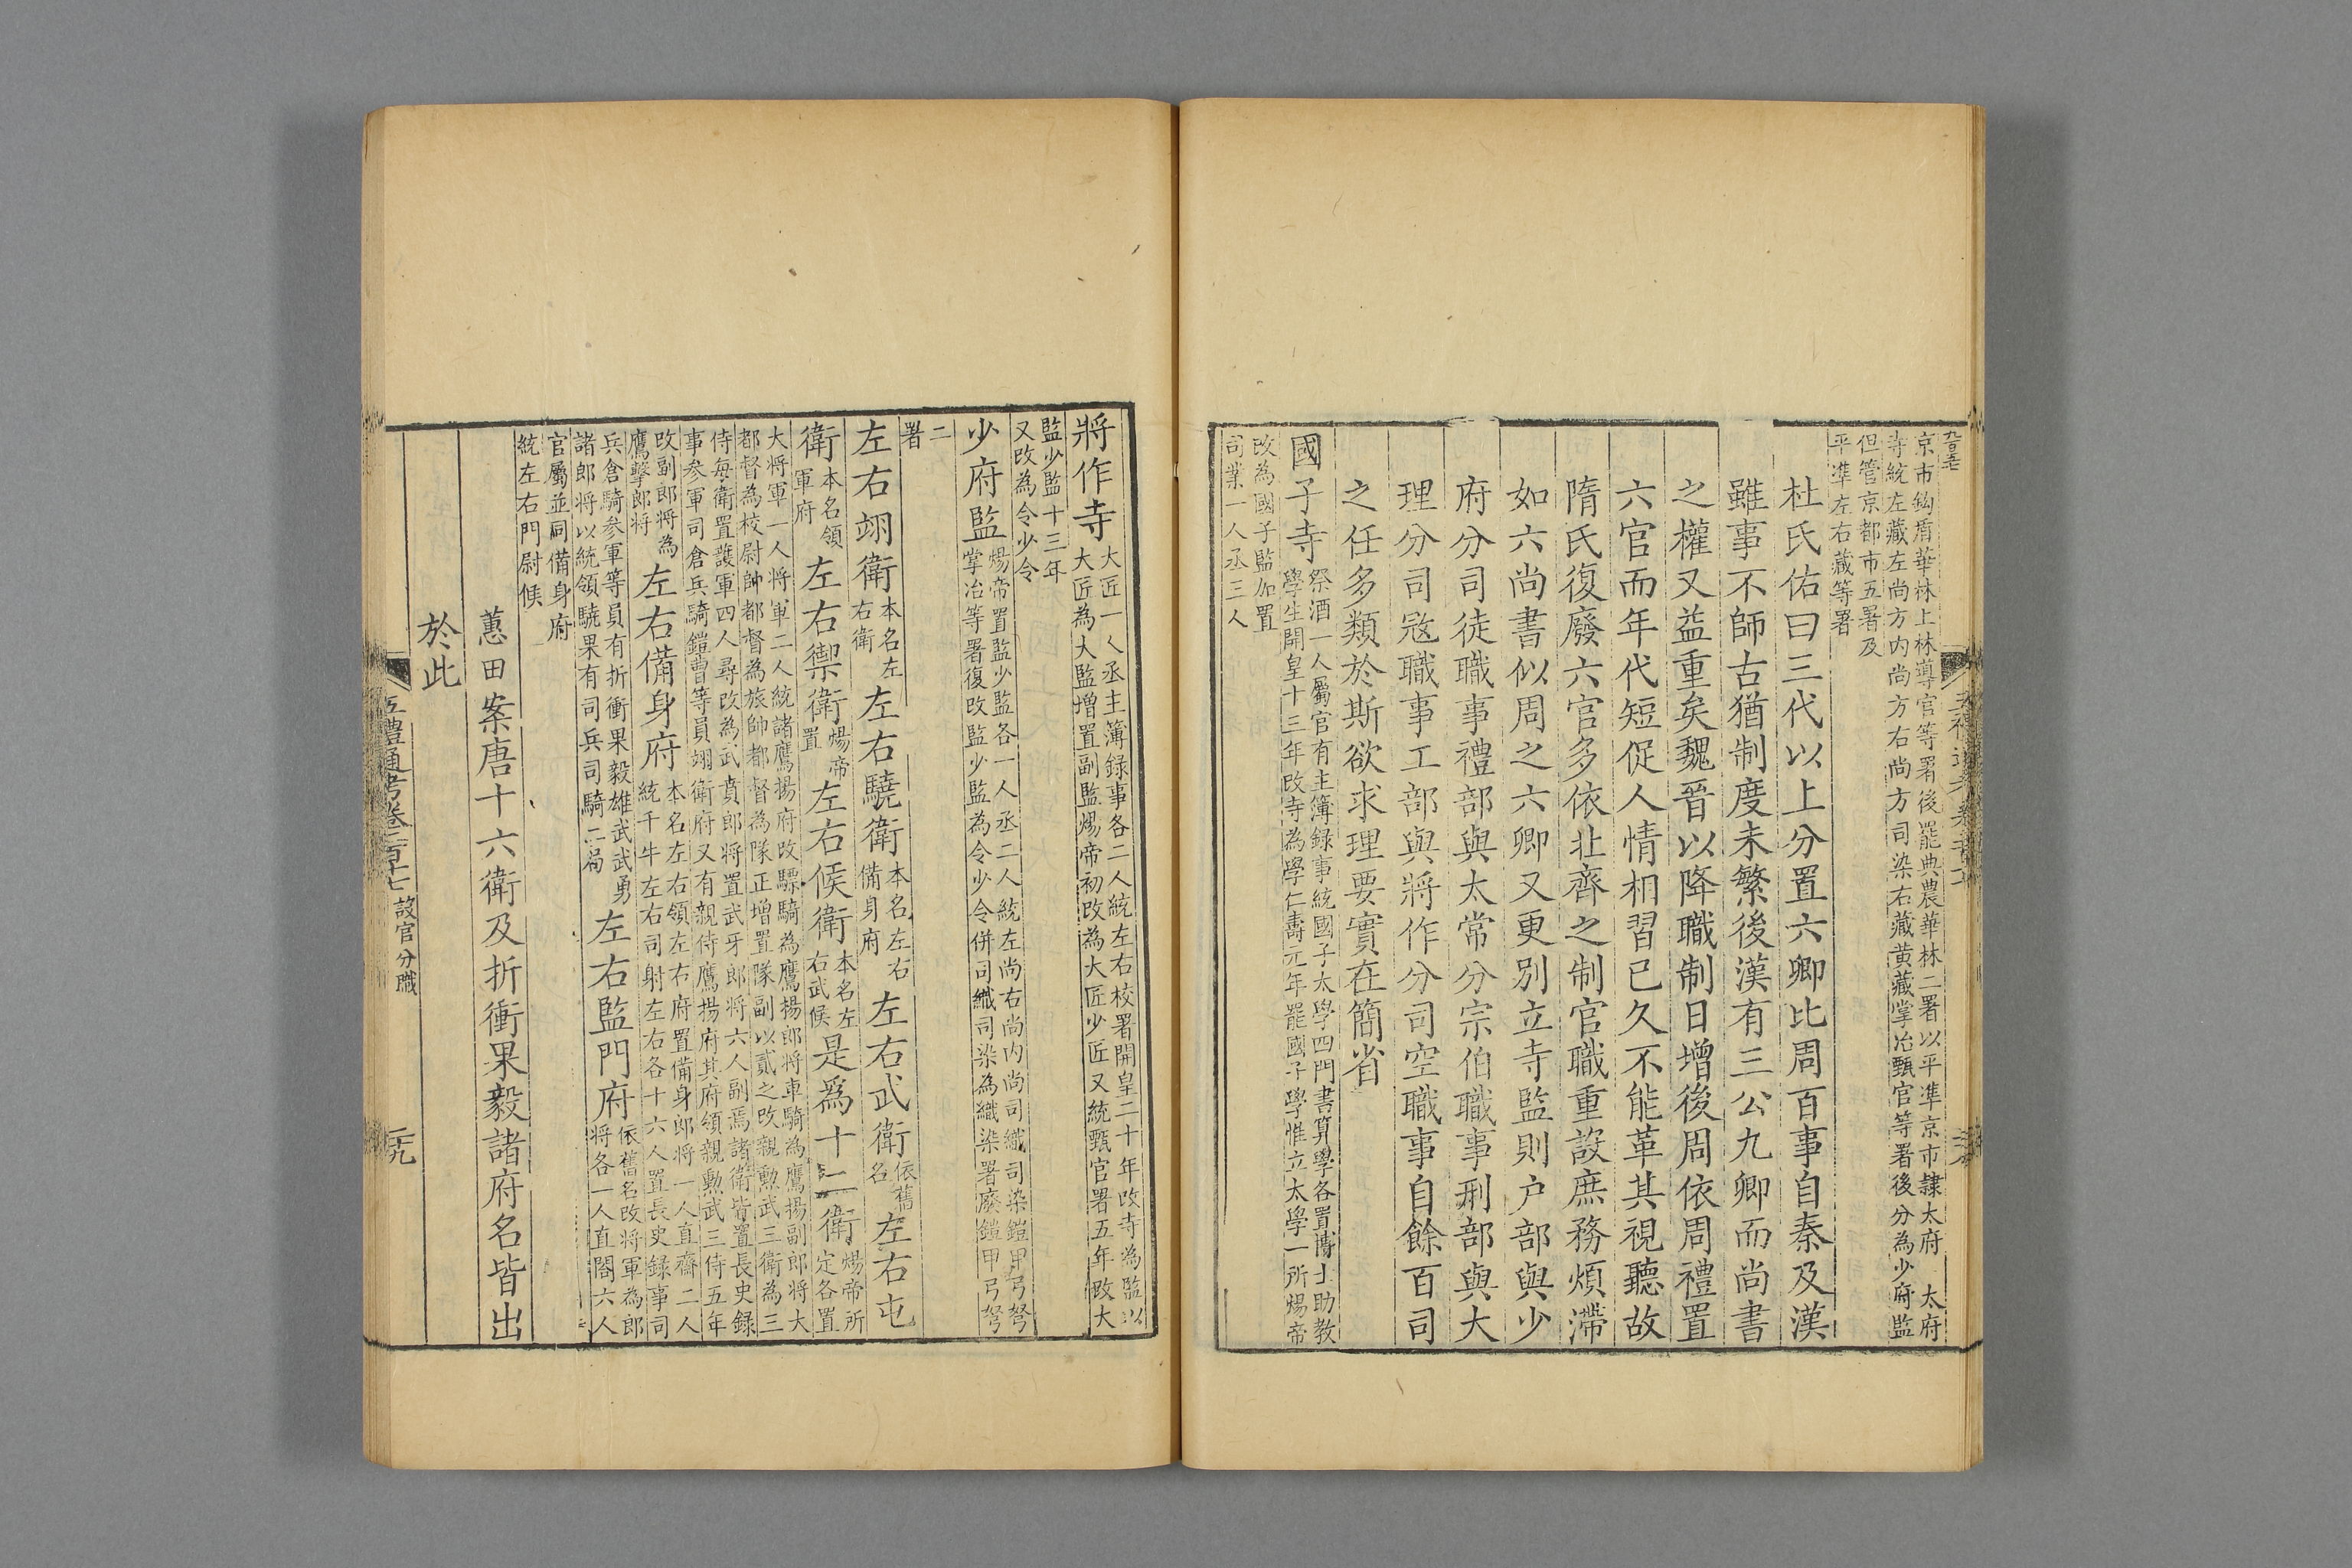 京市鈎盾華林上林導官等署後罷典農華林二署以平準京市隸太府　太府
寺統左藏左尚方内尚方右尚方司染右藏黄藏掌冶甄官等署後分為少府監
但管京都市五署及
平準左右藏等署
杜氏佑曰三代以上分置六卿比周百事自秦及漢
雖事不師古猶制度未繁後漢有三公九卿而尚書
之權又益重矣魏晉以降職制日增後周依周禮置
六官而年代短促人情相習已久不能革其視聽故
隋氏復廢六官多依北齊之制官職重設庶務煩滯
如六尚書似周之六卿又更别立寺監則户部與少
府分司徒職事禮部與太常分宗伯職事刑部與大
理分司寇職事工部與將作分司空職事自餘百司
之任多類於斯欲求理要實在簡省
國子寺祭酒一人屬官有主簿録事統國子太學四門書算學各置博士助教
學生開皇十三年改寺為學仁壽元年罷國子學惟立太學一所煬帝
改為國子監加置
司業一人丞三人
將作寺大匠一人丞主簿録事各二人統左右校署開皇二十年改寺為監以
大匠為大監增置副監煬帝初改為大匠少匠又統甄官署五年改大
監少監十三年
又改為令少令
少府監煬帝置監少監各一人丞二人統左尚右尚内尚司織司染鎧甲弓弩
掌冶等署復改監少監為令少令併司織司染為織染署廢鎧甲弓弩
二
署
左右翊衛本名左右衛左右驍衛本名左右備身府左右武衛依舊名左右屯
衛本名領軍府左右禦衛煬帝置左右候衛本名左右武候是爲十二衛煬帝所定各置
大將軍一人將軍二人統諸鷹揚府改驃騎為鷹揚郎將車騎為鷹揚副郎將大
都督為校尉帥都督為旅帥都督為隊正增置隊副以貳之改親勲武三衛為三
侍每衛置護軍四人尋改為武賁郎將置武牙郎將六人副焉諸衛皆置長史録
事參軍司倉兵騎鎧曹等員翊衛府又有親侍鷹揚府其府領親勲武三侍五年
改副郎將為
鷹擊郎將
左右備身府本名左右領左右府置備身郎將一人直齋二人
統千牛左右司射左右各十六人置長史録事司
兵倉騎參軍等員有折衝果毅雄武武勇
諸郎將以統領驍果有司兵司騎二局
左右監門府依舊名改將軍為郎
將各一人直閤六人
官屬並同備身府
統左右門尉候
蕙田案唐十六衛及折衝果毅諸府名皆出
於此
五禮通考卷二百十七　設官分職
二十九